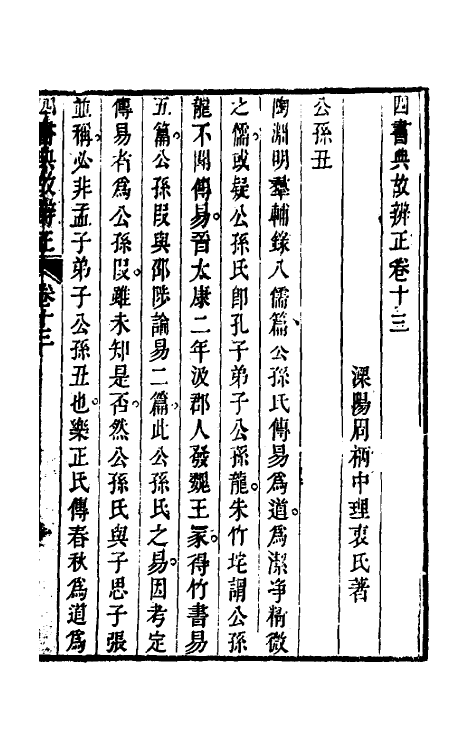 四書典故辨正卷十三
溧陽周柄中理衷氏著
公孫丑
陶淵明羣輔錄八儒篇公孫氏傳易爲道爲潔净精微
之儒或疑公孫氏卽孔子弟子公孫龍朱竹垞謂公孫
龍不聞傳易晉太康二年汲郡人發魏王冢得竹書易
五篇公孫段與邵陟論易二篇此公孫氏之易因考定
傳易者爲公孫段雖未知是否然公孫氏與子思子張
並稱必非孟子弟子公孫丑也樂正氏傳春秋爲道爲
四書典故辨正 卷十三